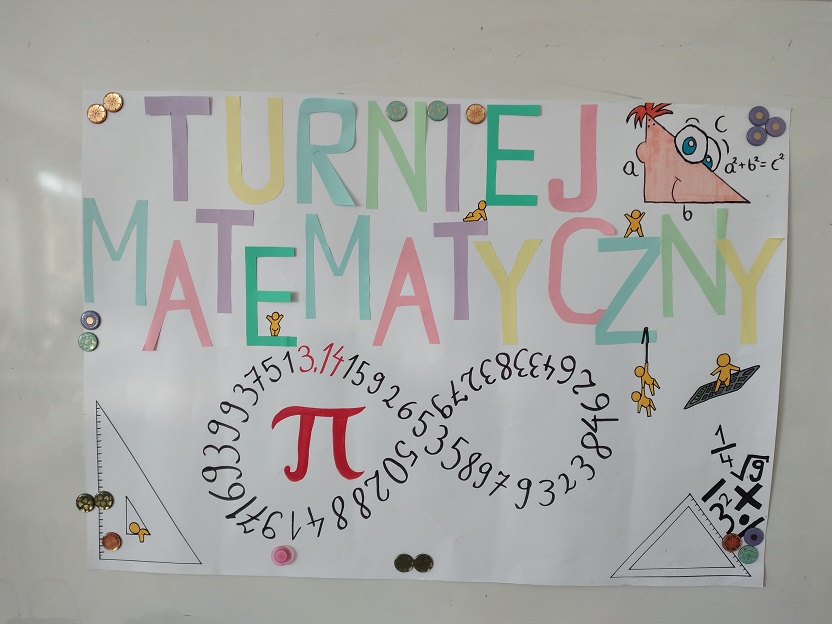 TURNIEJ
MATEMATYCZNY
c
a
b
a²+b²=c²
3,1415926535897932384626433832795028841971693993751
π
1/4
√9
×
3²
%